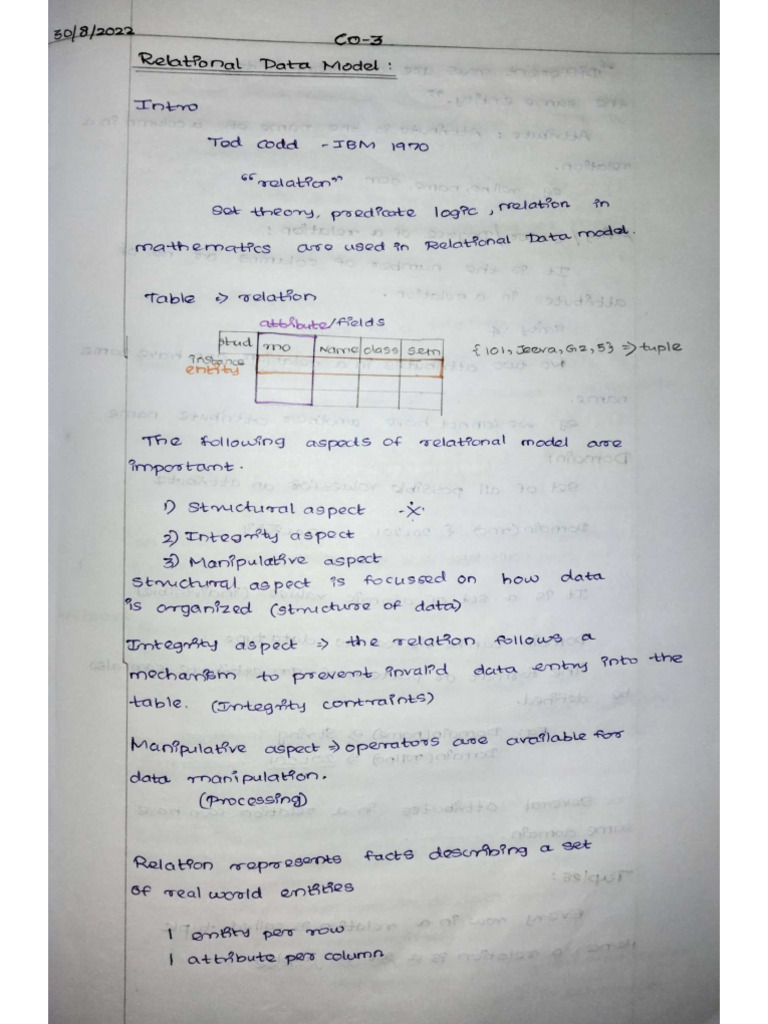 30/8/2022
CO-3
Relational Data Model :
Intro
Tod codd - IBM 1970
"relation"
Set theory, predicate logic, relation in
mathematics are used in Relational Data model.
Table => relation
attribute/fields
Stud rno Name class sem {101, Jeeva, G2, 5} => tuple
instance
entity
The following aspects of relational model are
important.
1) Structural aspect
2) Integrity aspect
3) Manipulative aspect
Structural aspect is focussed on how data
is organized (structure of data)
Integrity aspect => the relation follows a
mechanism to prevent invalid data entry into the
table. (Integrity contraints)
Manipulative aspect => operators are available for
data manipulation.
(Processing)
Relation represents facts describing a set
of real world entities
1 entity per row
1 attribute per column